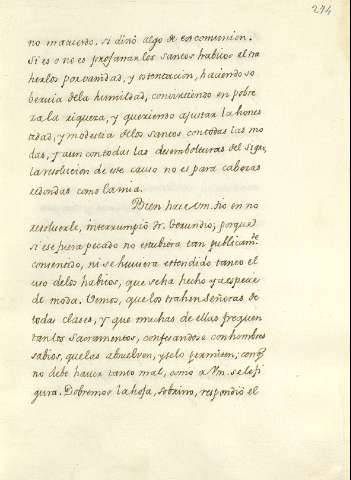 274
no marcerdo. si dirò algo de esa conversion.
Si es o no es profanar los santos habitos el tra
herlos por vanidad, y ostentacion, haciendo so
bervia dela humildad, convirtiendo en pobre
za la riqueza, y queriendo ajustar la hones
tidad, y modestia delos santos con todas las mo
das, y aun con todas las desembolturas del siglo,
la resolucion de ese causo no es para cabezas
redondas como la mia.
Bien hace Vm. tio en no
resolverle, interrumpió Fr. Gerundio; porque
si ese fuera pecado no estubiera tan publicam.te
consentido, ni se huviera estendido tanto el
uso delos habitos, que se ha hecho ya especie
de moda. Vemos, que los trahen Señoras de
todas clases, y que muchas de ellas frequen
tan los Sacramentos, confesandose con hombres
sabios, que las absuelven, y se lo permiten, con q.e
no debe haver tanto mal, como a Vm. se le fi
gura. Doblemos la hoja, sobrino, respondió el